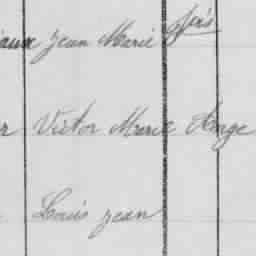 Jean Marie fils
Victor Marie Ange
Louis Jean